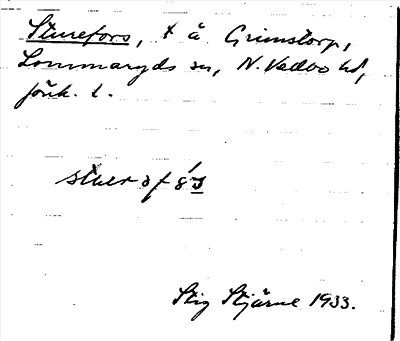 Sturefors, t å Grimstorp,
Lommaryds sn, N. Vedbo hd,
Jönk. l.
Stig Stjärne 1933.